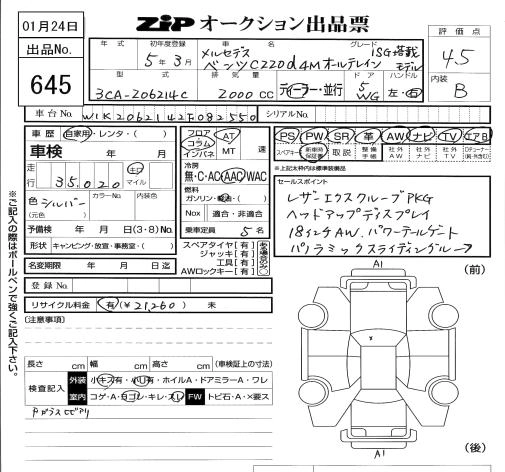 01月24日
出品No.
645
ZIP オークション出品票
評価点
4.5
内装
B
年式 初年度登録 車名 グレード
5年3月 メルセデス ベンツ C220d4Mオールテレイン ISG搭載モデル
型式 排気量 ドア ハンドル
3CA-206214C 2000CC ディーラー・並行 5 WG 左・右
車台No. W1K2062142F082550 シリアルNo.
車歴 自家用・レンタ・( )
車検 年 月
走行 35,020 キロ マイル
色 シルバー カラーNo. 内装色
(元色)
予備検 年 月 日(3・8)No.
形状 キャンピング・放宣・事務室・( )
名変期限 年 月 日迄
フロア コラム インパネ AT MT 速
冷房
無・C・AC・AAC・WAC
燃料
ガソリン・軽油・( )
Nox 適合・非適合
乗車定員 5名
スペアタイヤ[有]
ジャッキ[有]
工具[有]
AWロックキー[有]
PS PW SR 革 AW ナビ TV エアB
スペアキー 新車時保証書 取説 整備手帳 社外AW 社外ナビ 社外TV
※上記太枠は標準装備品
セールスポイント
レザーエクスクルーブPKG
ヘッドアップディスプレイ
18インチAW.パワーテールゲート
パノラミックスライディングルーフ
登録No.
リサイクル料金 有(¥21,260) 未
(注意事項)
長さ cm 幅 cm 高さ cm (車検証上の寸法)
検査記入
外装 小キズ有・小U有・ホイルA・ドアミラーA・ワレ
室内 コゲ・A・ヨゴレ・キレ・スレ FW トビ石・A・×要ス
Fガラスヒビアリ
A1
(前)
x
A1
(後)
※ご記入の際はボールペンで強くご記入下さい。